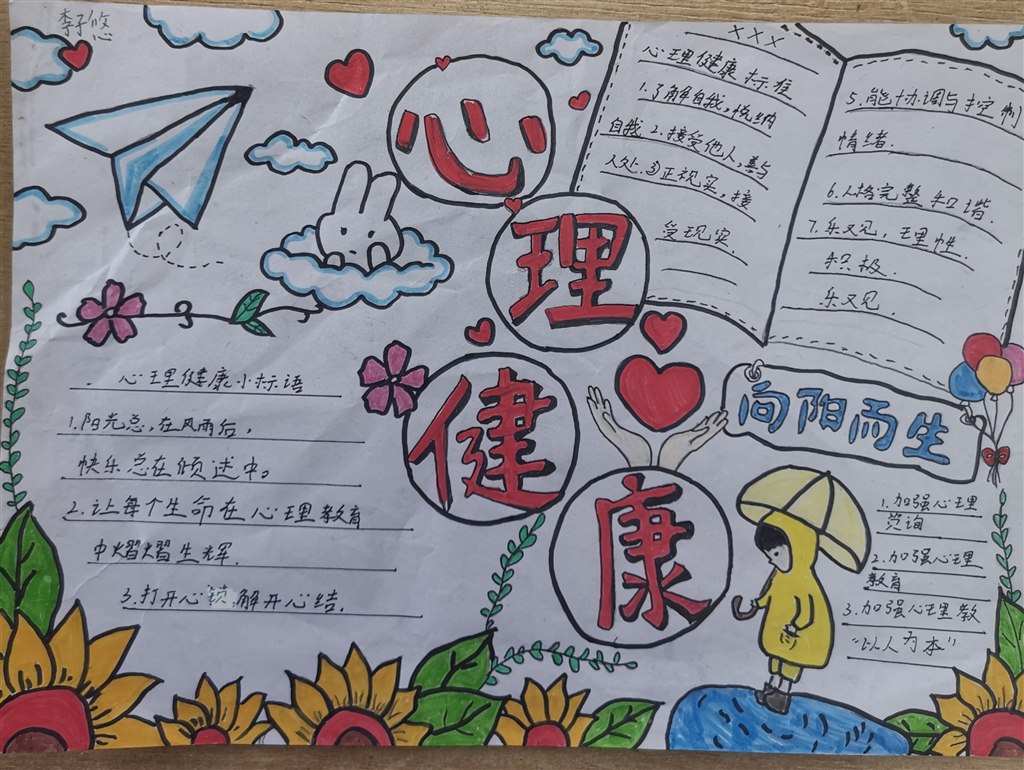 李子悠
心理健康
×××
心理健康标准
1.了解自我,悦纳
自我2.接受他人,善与
人处.3正视实,接
受现实.
5.能协调与控制
情绪.
6.人格完整和谐.
7.乐又见,理性
积极.
乐又见
向阳而生
心理健康小标语
1.阳光总,在风雨后,
快乐总在倾述中。
2.让每个生命在心理教育
中熠熠生辉.
3.打开心锁,解开心结.
1.加强心理
资询
2.加强心理
教育
3.加强心理教
"以人为本"